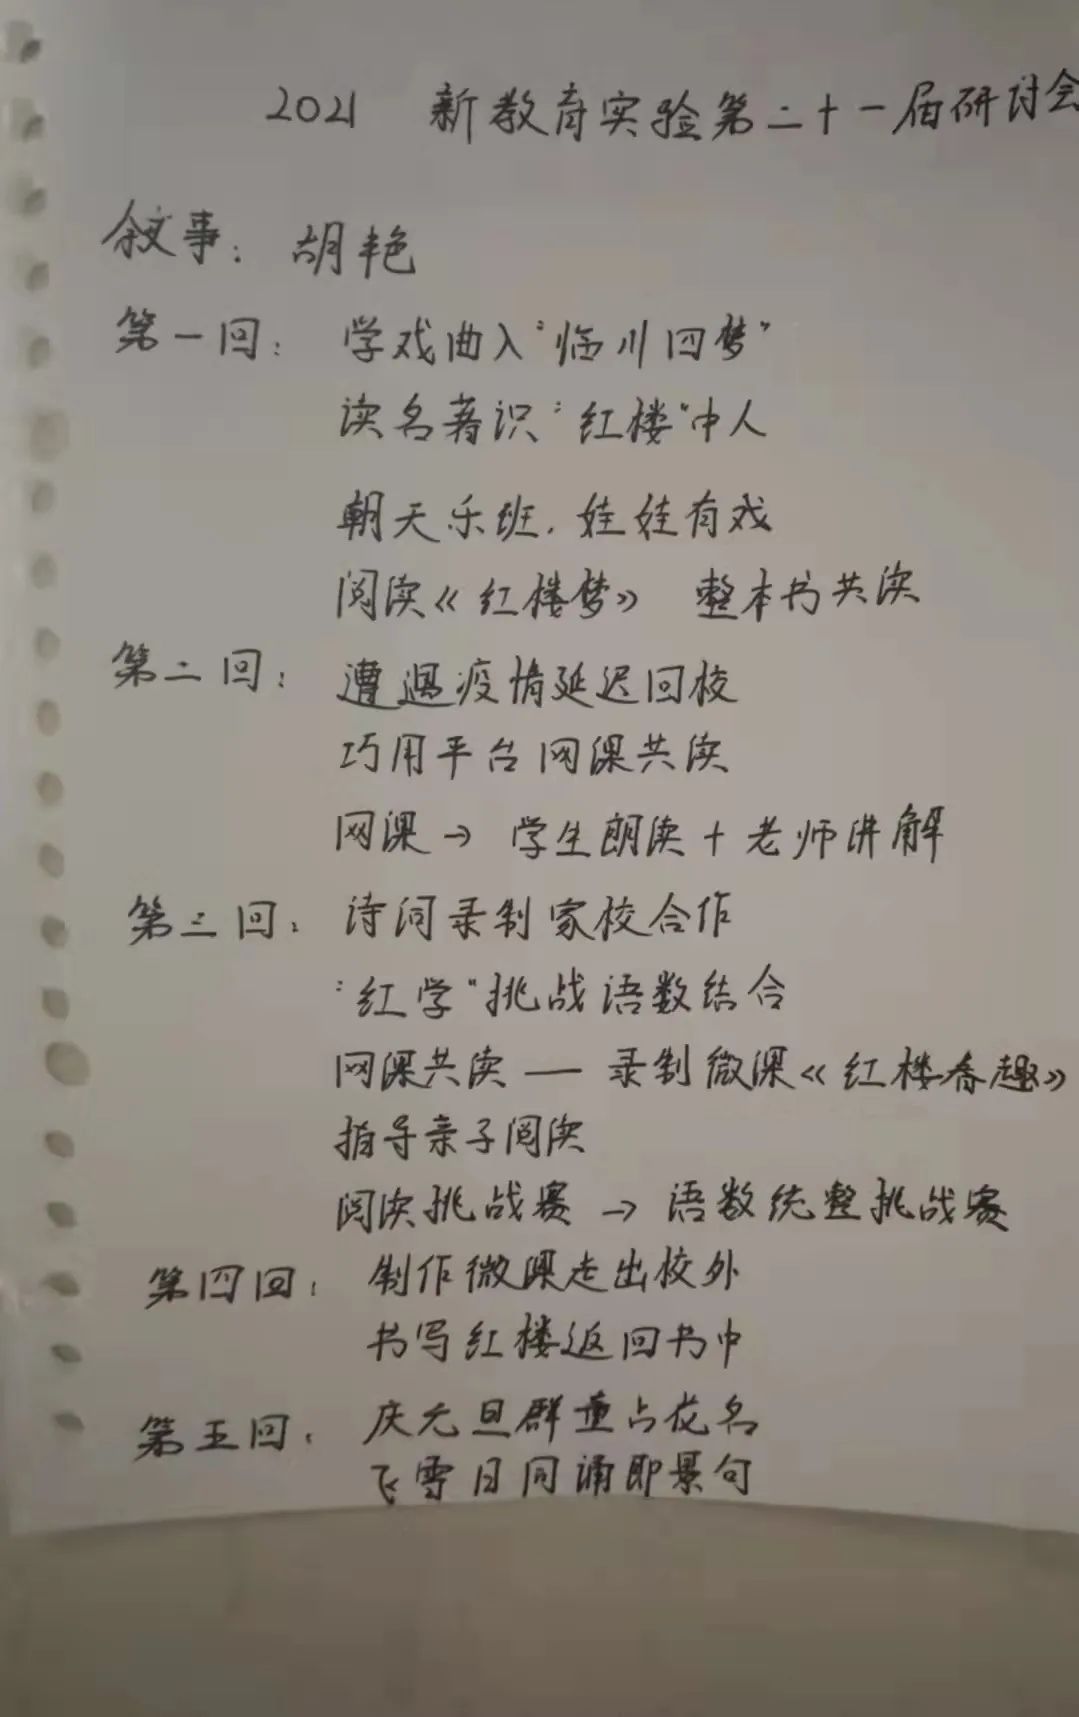 2021 新教育实验第二十一届研讨会
叙事：胡艳
第一回：学戏曲入“临川四梦”
读名著识“红楼”中人
朝天乐班，娃娃有戏
阅读《红楼梦》 整本书共读
第二回：遭遇疫情延迟回校
巧用平台网课共读
网课→学生朗读+老师讲解
第三回：诗词录制家校合作
“红学”挑战语数结合
网课共读——录制微课《红楼春趣》
指导亲子阅读
阅读挑战赛→语数统整挑战赛
第四回：制作微课走出校外
书写红楼返回书中
第五回：庆元旦群童占花名
飞雪日同诵即景句